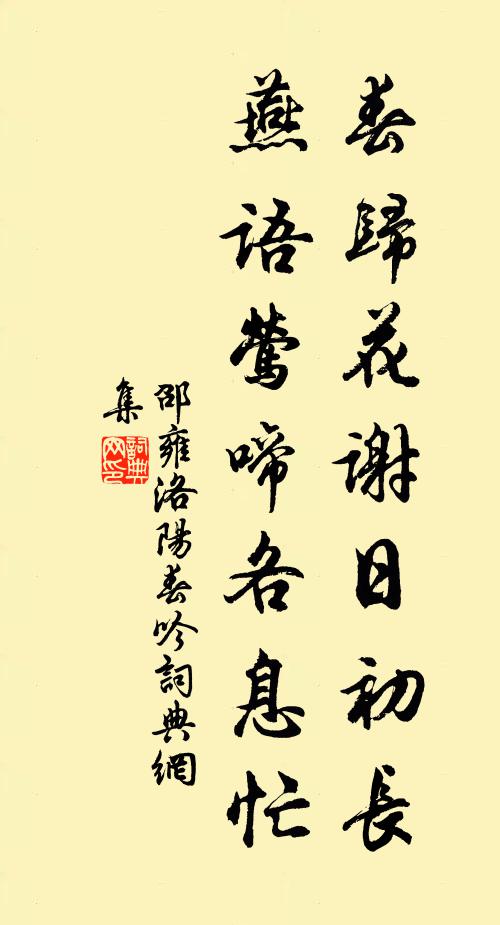 春歸花謝日初長
燕語鶯啼各息忙
邵雍洛陽春吟詞典網
集
詞典
网印